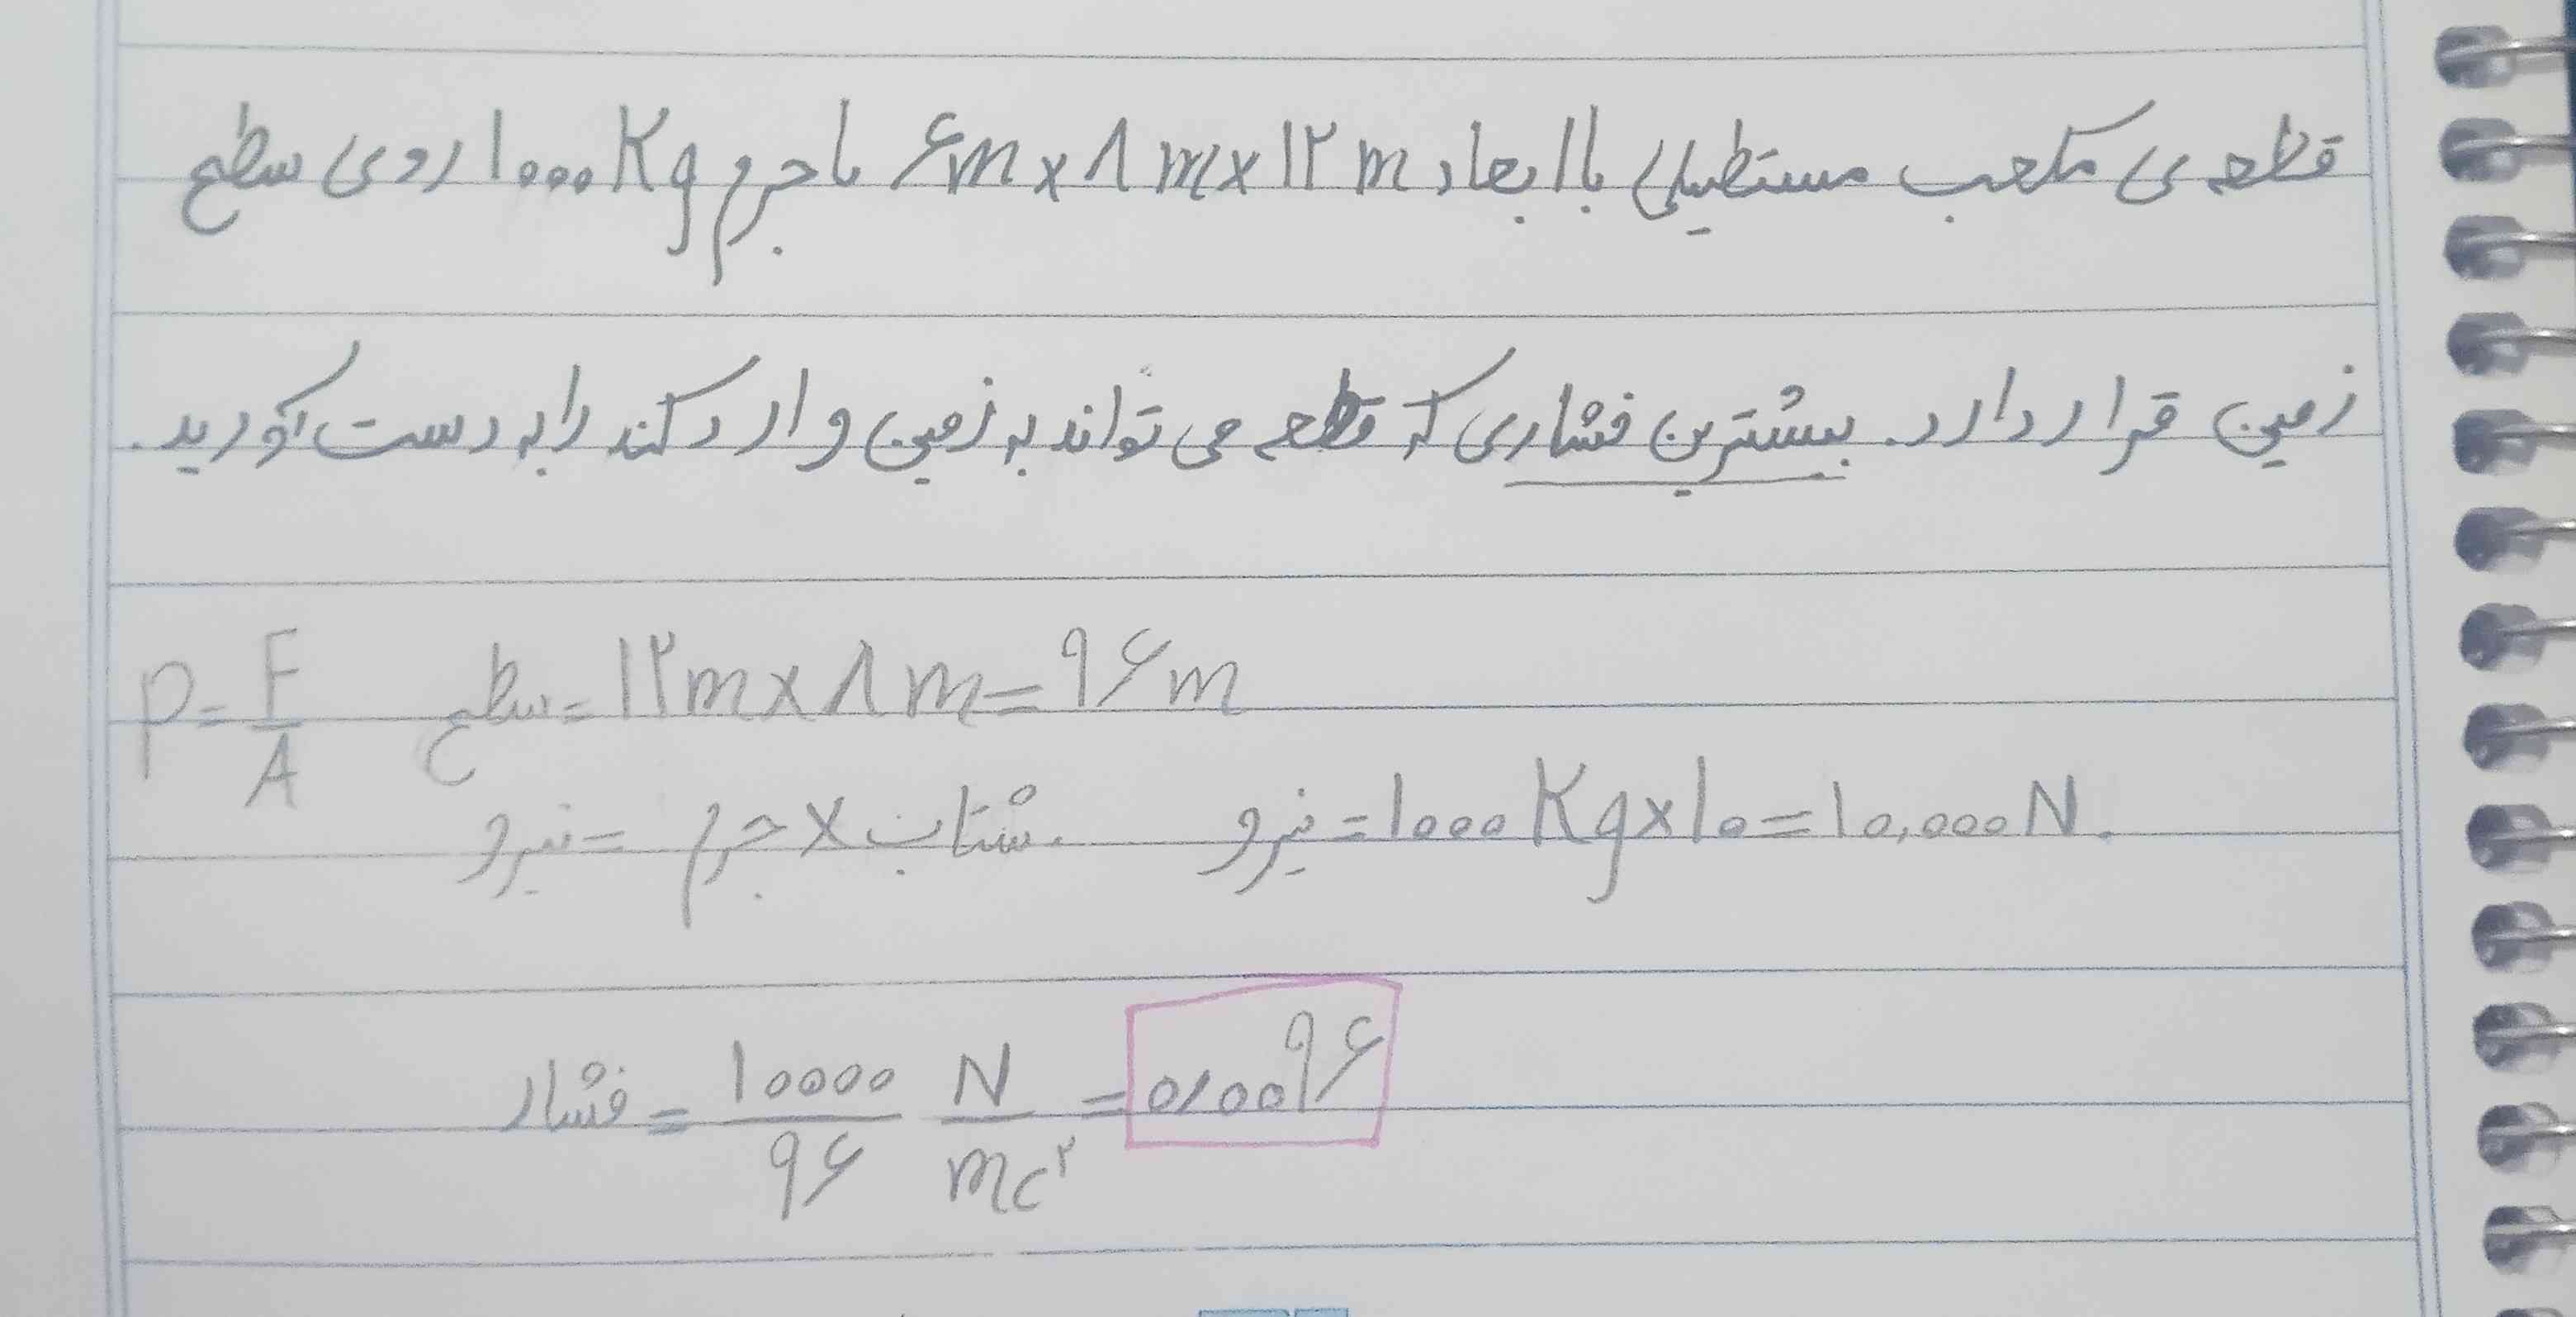 قطعه ی مکعب مستطیلی با ابعاد ۶m x ۸m x ۱۲m با جرم ۱۰۰۰Kg روی سطح
زمین قرار دارد. بیشترین فشاری که قطعه می تواند به زمین وارد کند را به دست آورید.
P = F/A سطح = ۱۲m x ۸m = ۹۶m
نیرو = جرم x شتاب. نیرو = ۱۰۰۰Kg x ۱۰ = ۱۰,۰۰۰N.
فشار = ۱۰۰۰۰/۹۶ N/mc۲ = ۰/۰۰۹۶